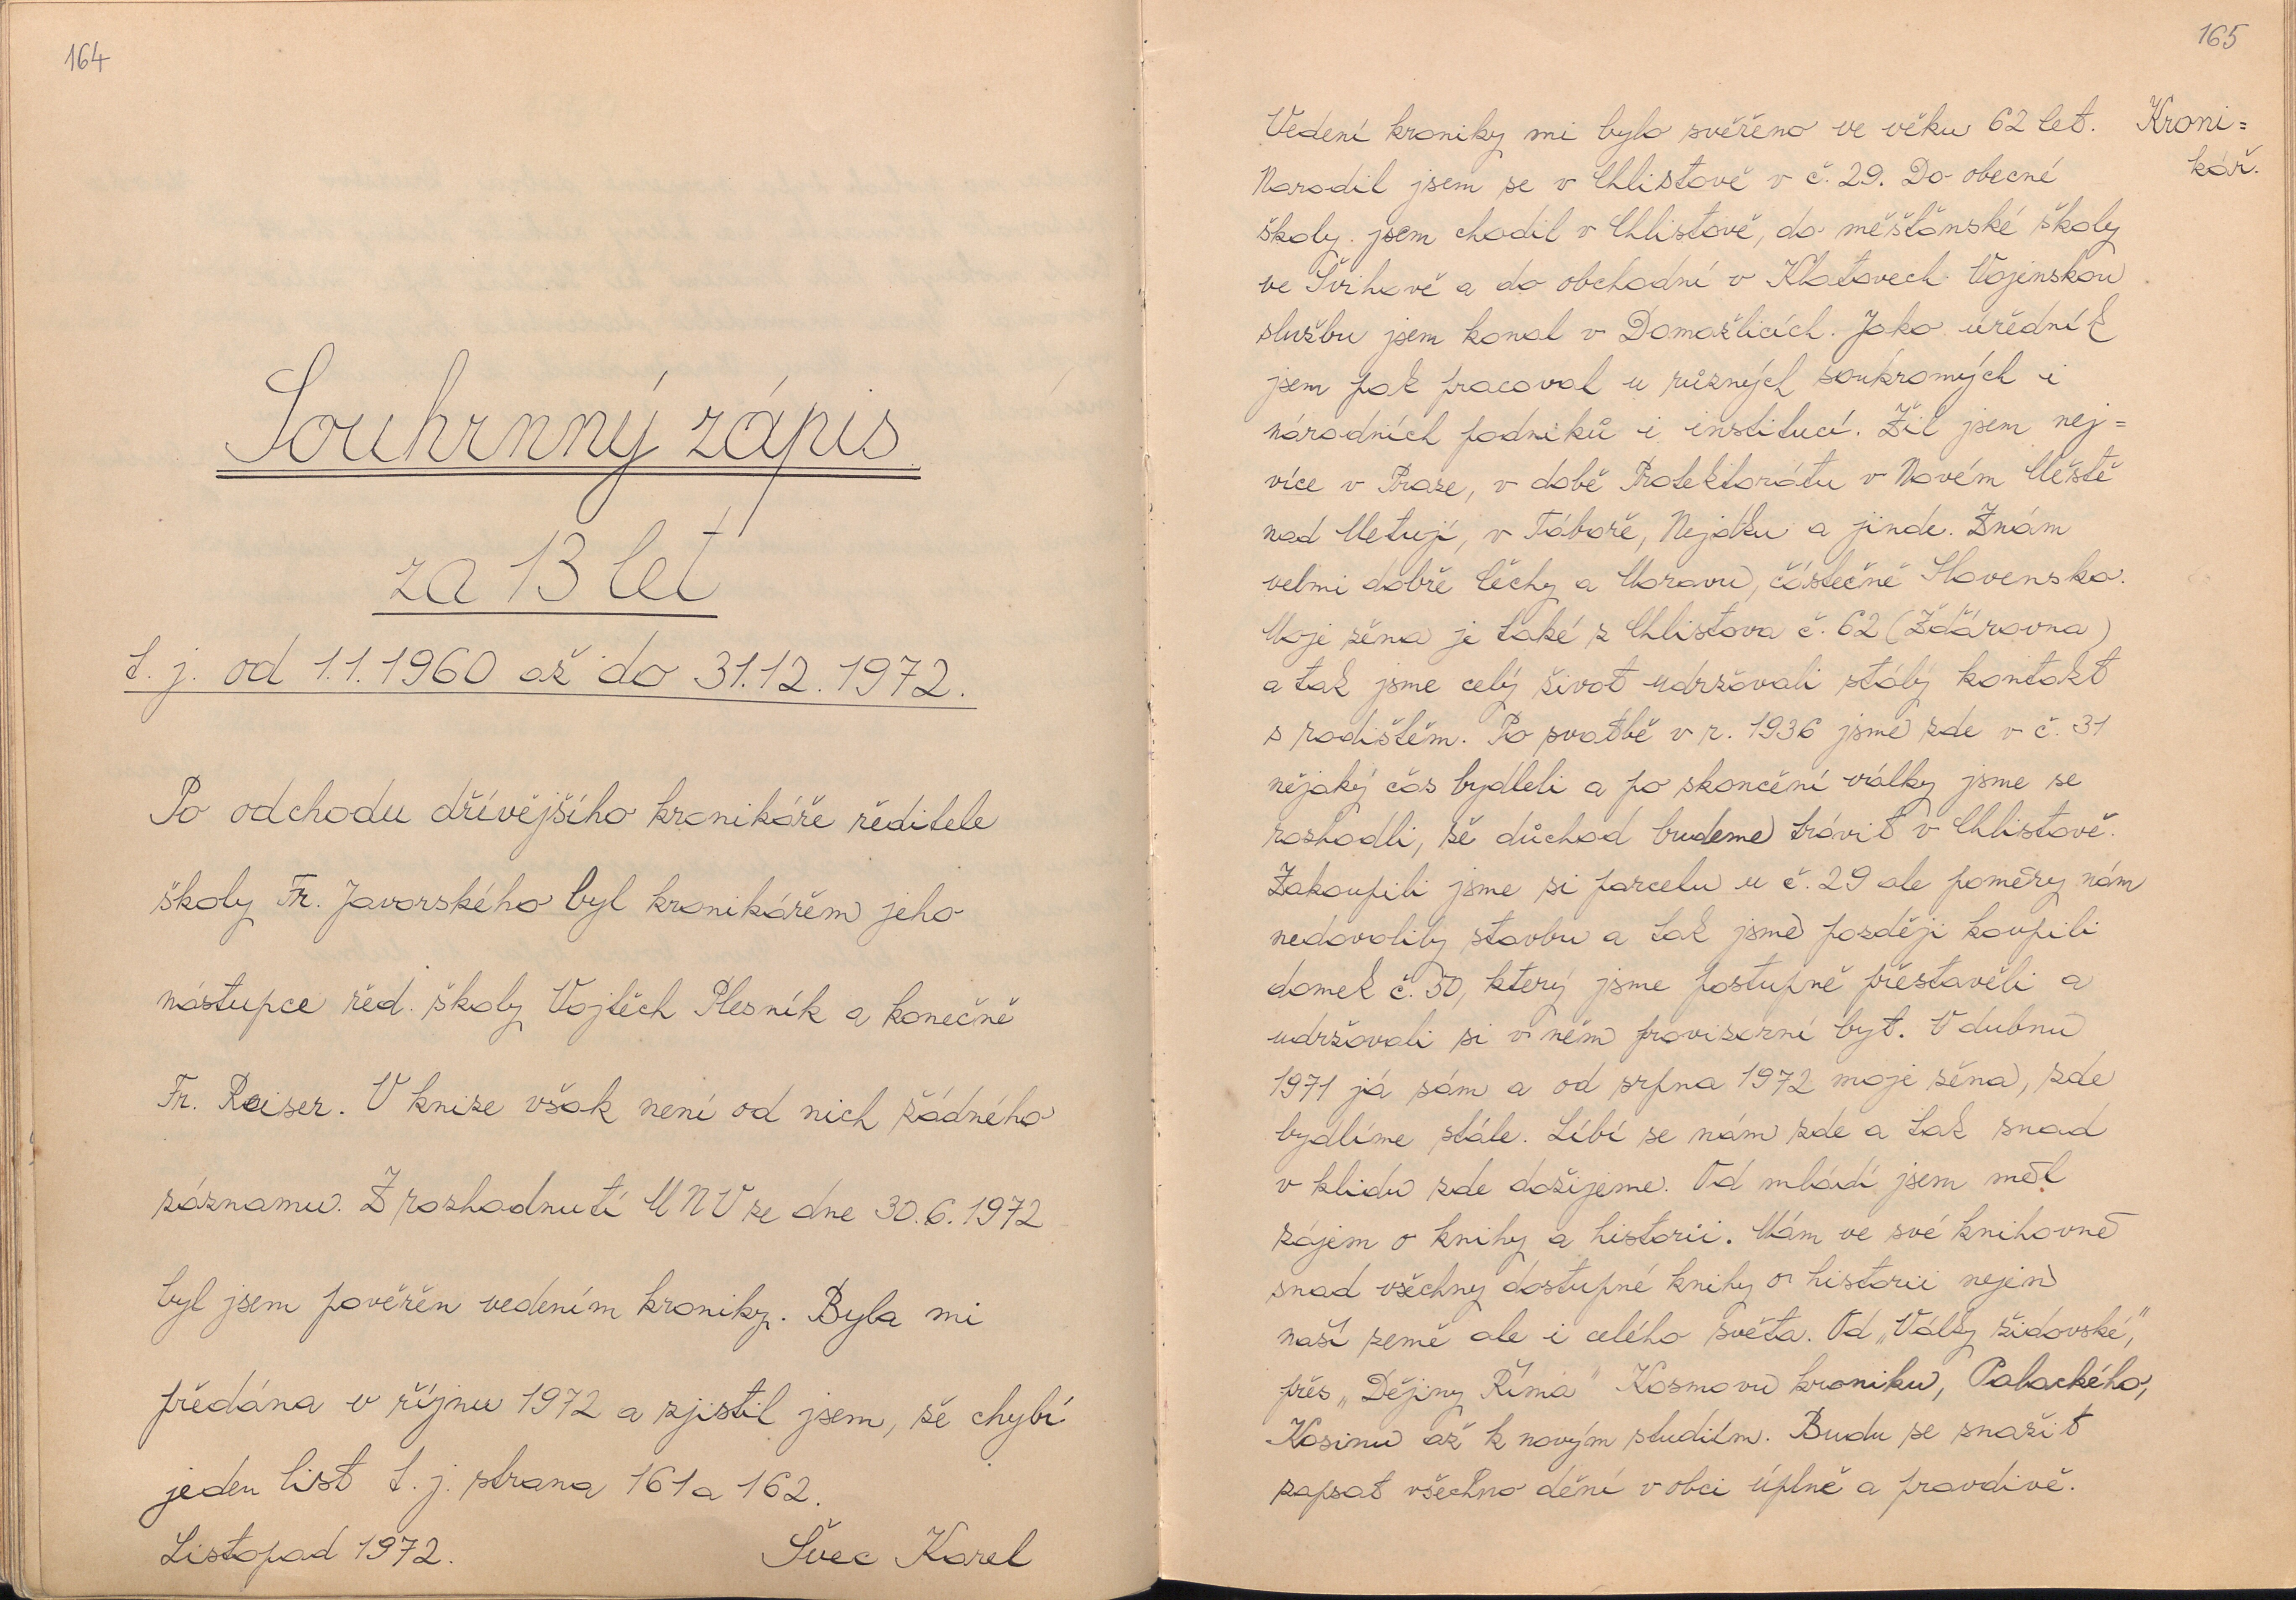 164
Souhrnný zápis
za 13 let
t. j. od 1.1.1960 až do 31.12.1972.
Po odchodu dřívějšího kronikáře ředitele
školy Fr. Javorského byl kronikářem jeho
nástupce řed. školy Vojtěch Plesník a konečně
Fr. Reiser. V knize však není od nich žádného
záznamu. Z rozhodnutí MNV ze dne 30.6.1972
byl jsem pověřěn vedením kroniky. Byla mi
předána v říjnu 1972 a zjistil jsem, že chybí
jeden list t. j. strana 161 a 162.
Listopad 1972. Švec Karel
165
Kroni=
kář.
Vedení kroniky mi bylo svěřeno ve věku 62 let.
Narodil jsem se v Chlistově v č. 29. Do obecné
školy jsem chodil v Chlistově, do měšťánské školy
ve Švihově a do obchodní v Klatovech. Vojenskou
službu jsem konal v Domažlicích. Jako úředník
jsem pak pracoval u různých soukromých i
národních podniků i institucí. Žil jsem nej=
více v Praze, v době Protektorátu v Novém Městě
nad Metují, v Táboře, Nejdku a jinde. Znám
velmi dobře Čechy a Moravu, částečně Slovensko.
Moje žena je také z Chlistova č. 62 (Žďárovna)
a tak jsme celý život udržovali stálý kontakt
s rodištěm. Po svatbě v r. 1936 jsme zde v č. 31
nějaký čas bydleli a po skončení války jsme se
rozhodli, že důchod budeme trávit v Chlistově.
Zakoupili jsme si parcelu u č. 29 ale poměry nám
nedovolily stavbu a tak jsme později koupili
domek č. 50, který jsme postupně přestavěli a
udržovali si v něm provizorní byt. V dubnu
1971 já sám a od srpna 1972 moje žena, zde
bydlíme stále. Líbí se nám zde a tak snad
v klidu zde dožijeme. Od mládí jsem měl
zájem o knihy a historii. Mám ve své knihovně
snad všechny dostupné knihy o historii nejen
naší země ale i celého světa. Od „Války židovské,"
přes „Dějiny Říma" Kosmovu kroniku, Palackého,
Kosinu až k novým studiím. Budu se snažit
zapsat všechno dění v obci úplně a pravdivě.